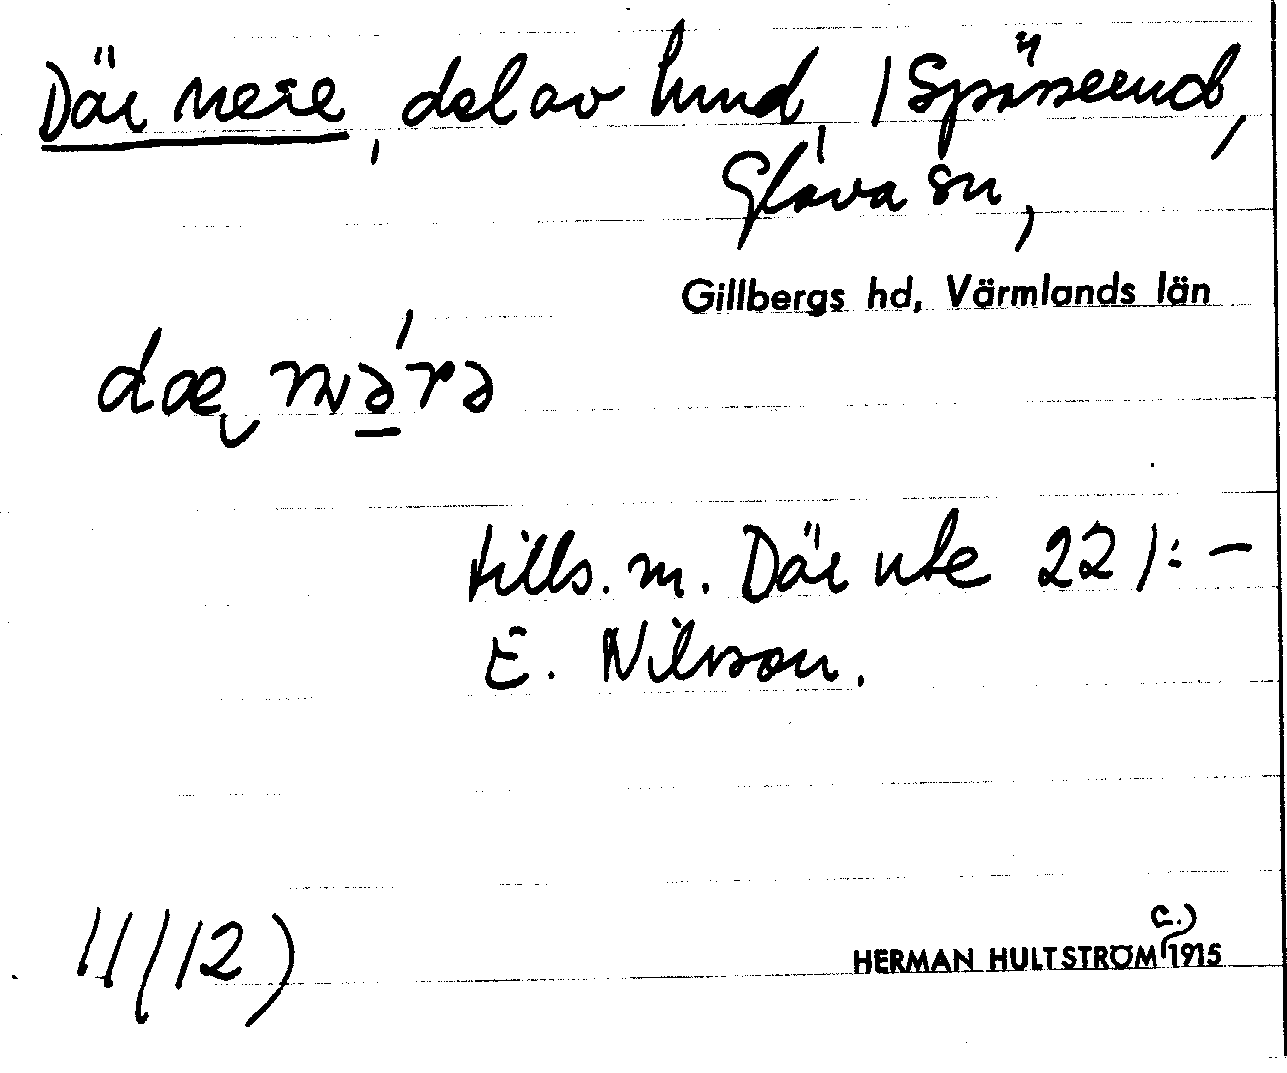 Där nere, del av hmd, 1 Spässerud,
Glava sn,
Gillbergs hd, Värmlands län
tills. m. Där ute 22/:-
E. Nilsson.
11(12)
c.)
HERMAN HULTSTRÖM 1915